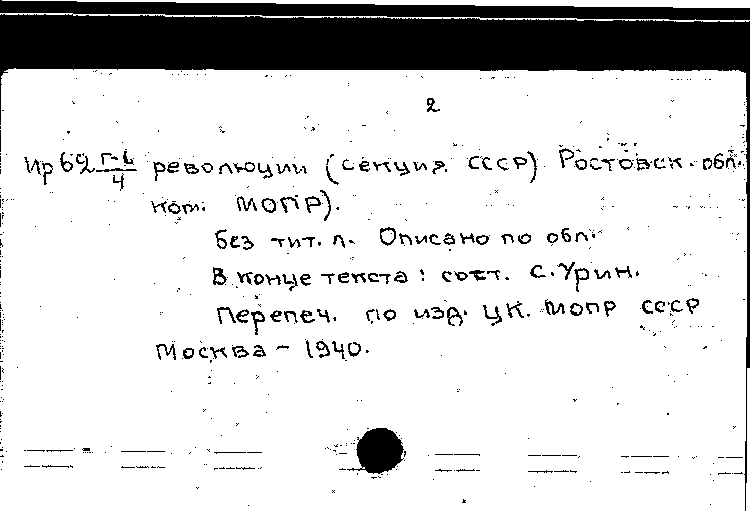 2
Ир 69 революции (секция СССР) Ростовск. обл.
ком. МОПР).
Без тит. л. Описано по обл.
В конце текста: сост. С. Урин.
Перепеч. по изд. ЦК. МОПР СССР
Москва - 1940.